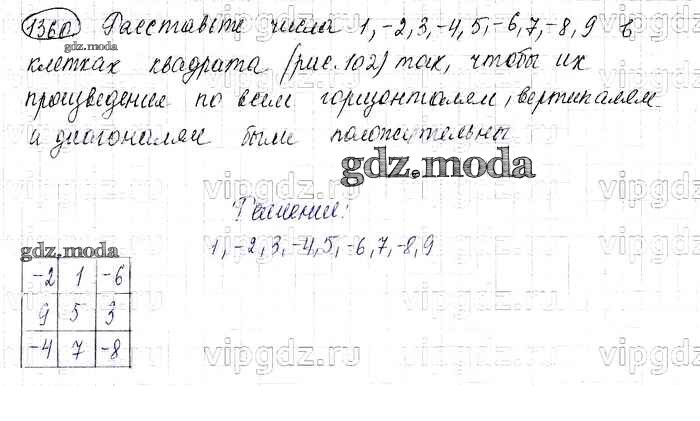 1360 Расставьте числа 1,-2,3,-4,5,-6,7,-8,9 в
gdz.moda
клетках квадрата (рис.102) так, чтобы их
произведение по всем горизонталям, вертикалям
и диагоналям были положительны
gdz.moda
vipgdz.ru vipgdz.ru vipgdz.ru
Решение:
gdz.moda
1,-2,3,-4,5,-6,7,-8,9
vipgdz.ru vipgdz.ru
-2 1 -6
9 5 3
-4 7 -8
vipgdz.ru vipgdz.ru